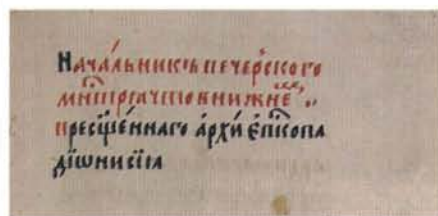 Нача́льникъ пече́рского
мнⷭ҇трѧ что внижнеⷨ
пресщ҃е́ннаго а҆рхї є҆пⷭ҇копа
дїѡнисїа